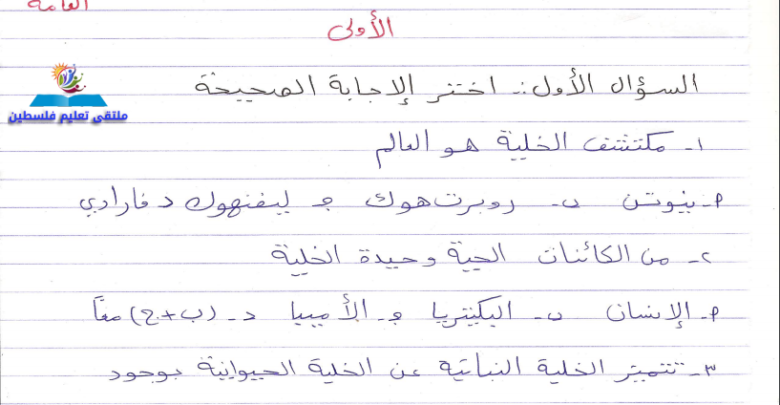 العامة
الأولى
السؤال الأول:- اختر الإجابة الصحيحة
ملتقى تعليم فلسطين
١- مكتشف الخلية هو العالم
م- نيوتن ب- روبرت هوك ج- ليفنهوك د- فارادي
٢- من الكائنات الحية وحيدة الخلية
م- الإنسان ب- البكيتريا ج- الأميبا د- (ب+ج) معاً
٣- تتميز الخلية النباتية عن الخلية الحيوانية بوجود